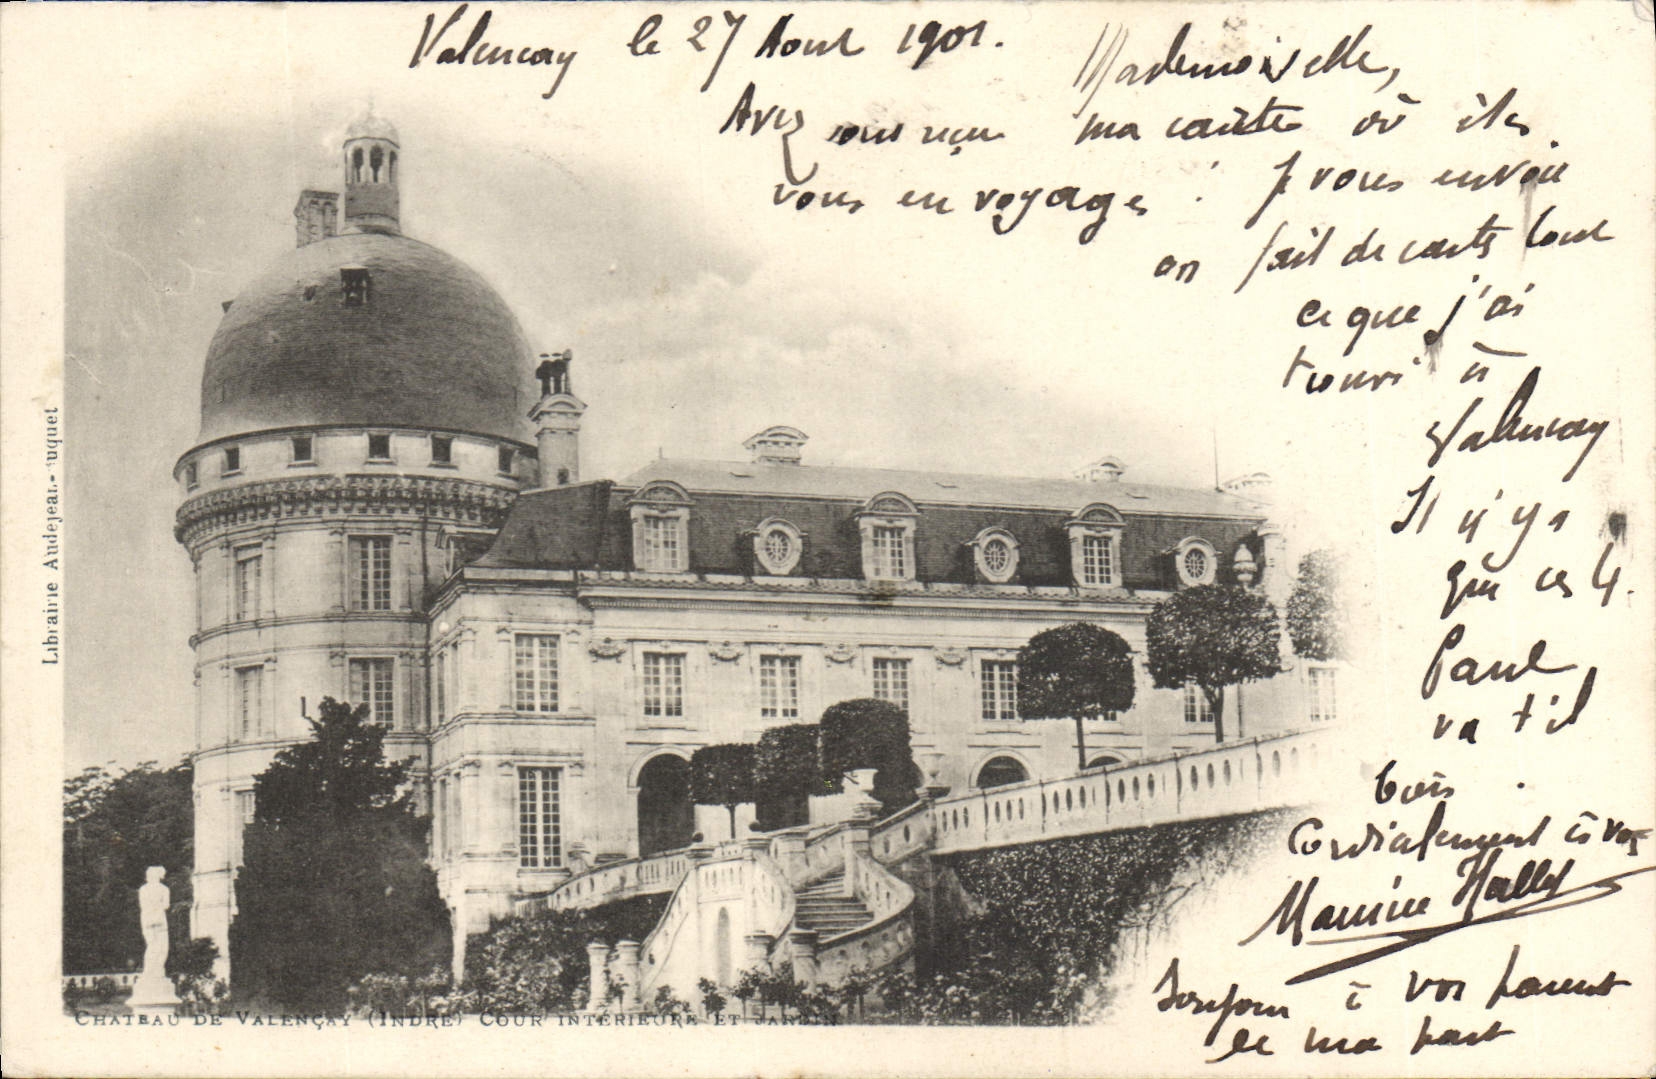 Valencay le 27 Aout 1901.
Mademoiselle,
Avez vous reçu ma carte où êtes
vous en voyages ! Je vous envoie
en fait de carte tout
ce que j'ai
trouvé à
Valencay
Il n'y a
que ces 4.
Paul
va t'il
bien
Cordialement à vous
Maurice Hallet
Bonjour à vos parent
de ma part
Librairie Audejean-
CHATEAU DE VALENÇAY (INDRE) COUR INTÉRIEURE ET JARDIN